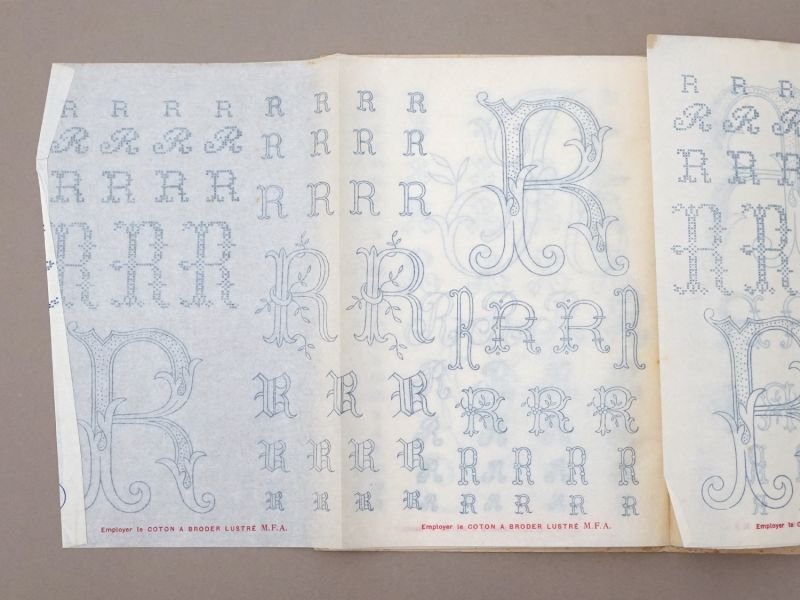 R R R R
R R R R
R R R R
R R R R
R
R R R R
R R R R
R R R R
R R
R R R
R R R R
R R R R
Employer le COTON A BRODER LUSTRÉ M.F.A.
R
R R R R
R R R
R R R R
R R R R
Employer le COTON A BRODER LUSTRÉ M.F.A.
R R R
R R R
R R R
R R
R
R
R
R
Employer le